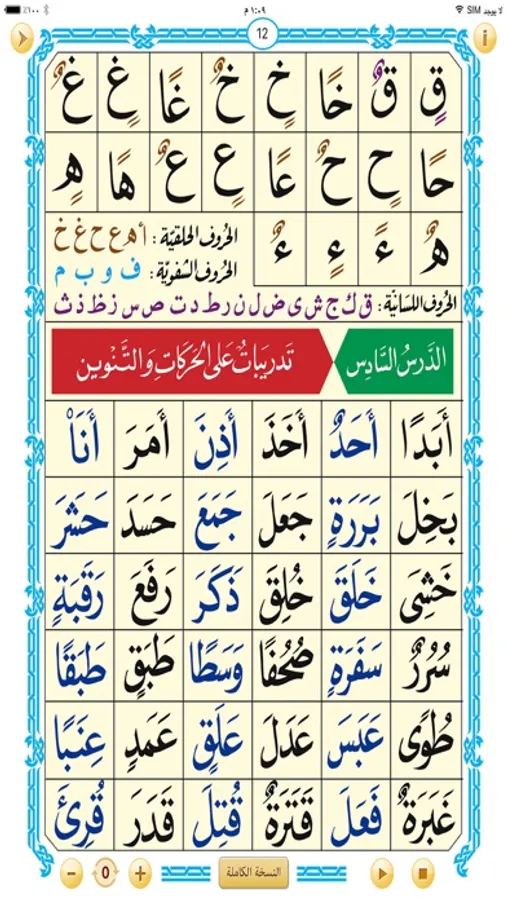 لا يوجد SIM ١:٠٩ م ٪١٠٠
12
قٍ قٌ خًا خٍ خٌ غًا غٍ غٌ
حًا حٍ حٌ عًا عٍ عٌ هًا هٍ
هٌ ءً ءٍ ءٌ
الحُروف الحلقيّة : أ هـ ع ح غ خ
الحُروف الشفويّة : ف و ب م
الحُروف اللسانيّة : ق ك ج ش ي ض ل ن ر ط د ت ص س ز ظ ذ ث
الدَّرسُ السَّادِس تَدرِيبَاتٌ عَلَى الحَرَكَاتِ وَالتَّنْوِين
أَبَدًا أَحَدٌ أَخَذَ أَذِنَ أَمَرَ أَنَا۠
بَخِلَ بَرَرَةٍ جَعَلَ جَمَعَ حَسَدَ حَشَرَ
خَشِيَ خَلَقَ خُلِقَ ذَكَرَ رَفَعَ رَقَبَةٍ
سُرُرٌ سَفَرَةٍ صُحُفًا وَسَطًا طَبَقٍ طَبَقًا
طُوًى عَبَسَ عَدَلَ عَلَقٍ عَمَدٍ عِنَبًا
غَبَرَةٌ فَعَلَ قَتَرَةٌ قُتِلَ قَدَرَ قُرِئَ
- 0 + النسخة الكاملة